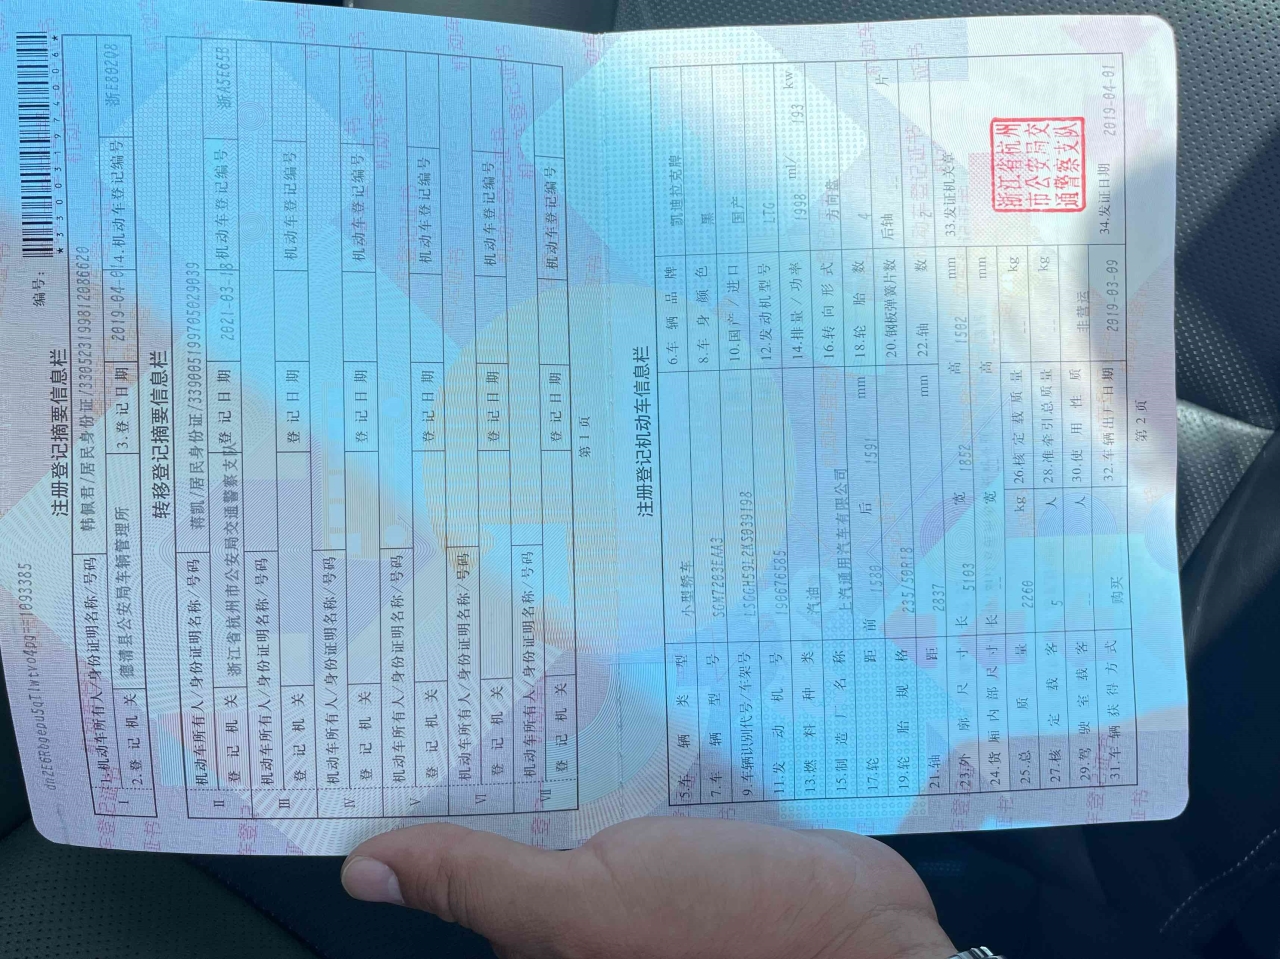 dnzE6Rbgepu5qTlwtvo4pg==1093385
编号：
*330031974006*
注册登记摘要信息栏
Ⅰ
1.机动车所有人/身份证明名称/号码 韩佩君/居民身份证/330523199812086620
2.登记机关 德清县公安局车辆管理所 3.登记日期 2019-04-01 4.机动车登记编号 浙E802Q8
转移登记摘要信息栏
Ⅱ
机动车所有人/身份证明名称/号码 蒋凯/居民身份证/339005199705029039
登记机关 浙江省杭州市公安局交通警察支队 登记日期 2021-03-18 机动车登记编号 浙A5E65B
Ⅲ
机动车所有人/身份证明名称/号码
登记机关 登记日期 机动车登记编号
Ⅳ
机动车所有人/身份证明名称/号码
登记机关 登记日期 机动车登记编号
Ⅴ
机动车所有人/身份证明名称/号码
登记机关 登记日期 机动车登记编号
Ⅵ
机动车所有人/身份证明名称/号码
登记机关 登记日期 机动车登记编号
Ⅶ
机动车所有人/身份证明名称/号码
登记机关 登记日期 机动车登记编号
第1页
注册登记机动车信息栏
5.车辆类型 小型轿车 6.车辆品牌 凯迪拉克牌
7.车辆型号 SGM7203EAA3 8.车身颜色 黑
9.车辆识别代号/车架号 LSGGH59L2KS039198 10.国产/进口 国产
11.发动机号 190676585 12.发动机型号 LTG
13.燃料种类 汽油 14.排量/功率 1998 ml/ 193 kw
15.制造厂名称 上汽通用汽车有限公司 16.转向形式 方向盘
17.轮距 前 1580 后 1591 mm 18.轮胎数 4
19.轮胎规格 235/50R18 20.钢板弹簧片数 后轴 片
21.轴距 2837 mm 22.轴数 2
23.外廓尺寸 长 5103 宽 1852 高 1502 mm 33.发证机关章
24.货厢内部尺寸 长 宽 高 mm
25.总质量 2260 kg 26.核定载质量 kg
27.核定载客 5 人 28.准牵引总质量 kg
29.驾驶室载客 -- 人 30.使用性质 非营运
31.车辆获得方式 购买 32.车辆出厂日期 2019-03-09 34.发证日期 2019-04-01
浙江省杭州
市公安局交
通警察支队
第2页